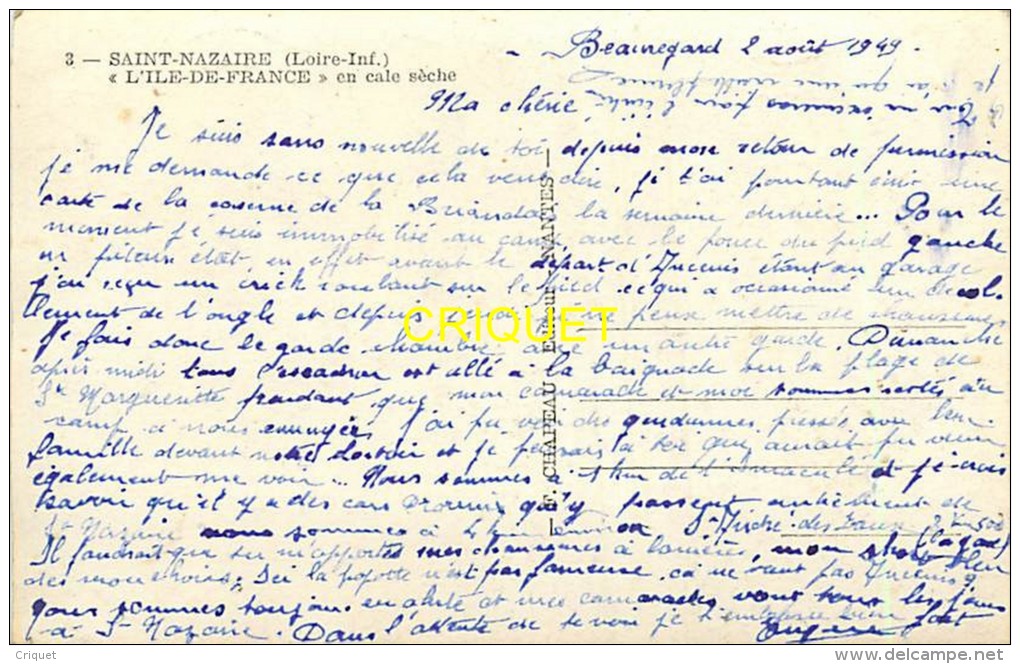 3 — SAINT-NAZAIRE (Loire-Inf.)
« L'ILE-DE-FRANCE » en cale sèche
Beauregard 2 août 1949.
Ma chérie
Je suis sans nouvelle de toi depuis mon retour de permission
je me demande ce que cela veut dire, je t'ai pourtant écrit une
carte de la caserne de la la semaine dernière... Pour le
moment je suis immobilisé au camp avec le pouce du pied gauche
en piteux état, en effet avant le départ d'Ancenis étant au garage
j'ai reçu un crick roulant sur le pied ce qui a occasionné un décol-
lement de l'ongle et depuis je ne peux mettre de chaussures
Je fais donc le garde chambre avec un autre garde. Dimanche
après midi tous l'escadron est allé à la baignade sur la plage de
Ste Marguerite pendant que mon camarade et moi sommes restés au
camp à nous ennuyer. J'ai pu voir des gendarmes passés avec leur
famille devant notre et je pensais à toi qui aurait pu venir
également me voir... Nous sommes à 1 km de l'Immaculé et je crois
savoir qu'il y a des cars Drouin qui y passent
St Nazaire nous sommes à 4 km St André-des-Eaux
Il faudrait que tu m'apportes mes chaussures à lanières, mon short bleu
des mouchoirs. Ici la popotte n'est pas fameuse, ça ne vaut pas Ancenis
nous sommes toujours en alerte et mes camarades vont tous les jours
à St Nazaire. Dans l'attente de te voir je t'embrasse bien fort
E. CHAPEAU NANTES
CRIQUET
delcampe.net